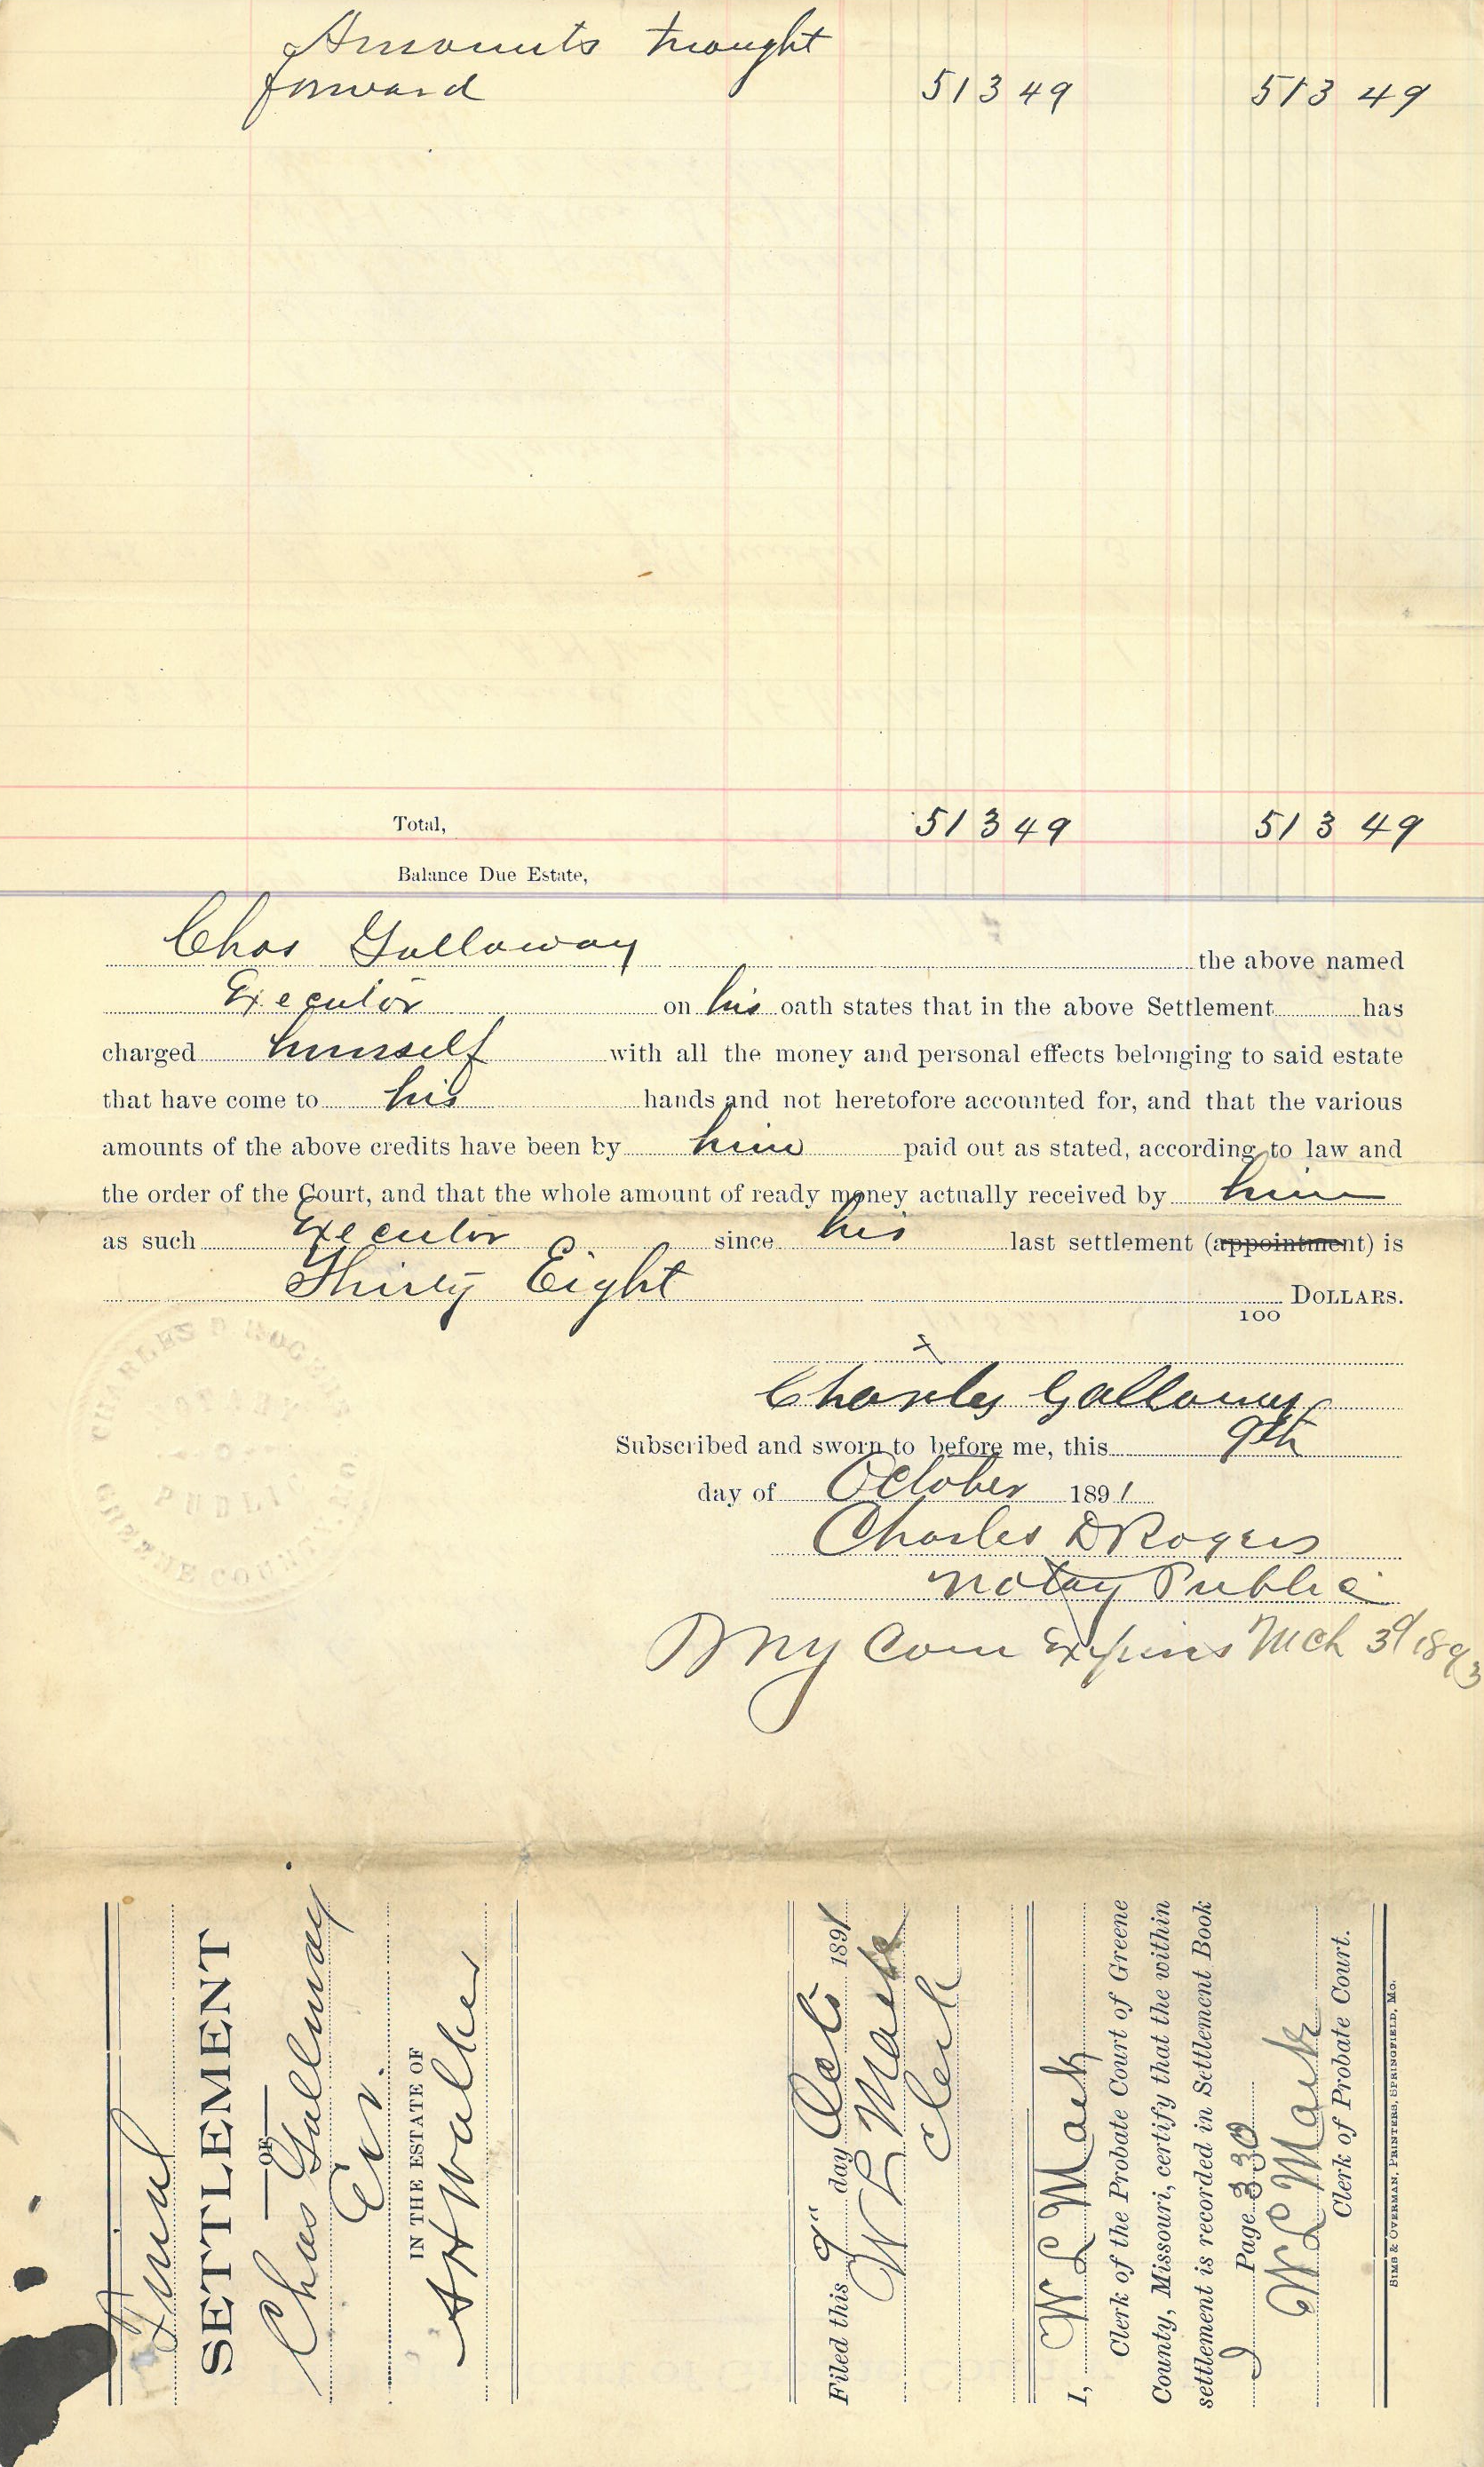 Amounts brought
forward 513 49 513 49
Total, 513 49 513 49
Balance Due Estate,
Chas Galloway the above named
Executor on his oath states that in the above Settlement has
charged himself with all the money and personal effects belonging to said estate
that have come to his hands and not heretofore accounted for, and that the various
amounts of the above credits have been by him paid out as stated, according to law and
the order of the Court, and that the whole amount of ready money actually received by him
as such Executor since his last settlement (appointment) is
Thirty Eight 100 DOLLARS.
x
Charles Galloway
Subscribed and sworn to before me, this 9th
day of October 1891
Charles D Rogers
Notay Public
My Com Expires Mch 3d 1893
CHARLES D ROGERS
NOTARY
PUBLIC
GREENE COUNTY
Final
SETTLEMENT
OF
Chas Galloway
Ex.
IN THE ESTATE OF
A H Walker
Filed this 9" day Oct 1891
W L Mack
Clerk
I, W L Mack
Clerk of the Probate Court of Greene
County, Missouri, certify that the within
settlement is recorded in Settlement Book
Page 330
W L Mack
Clerk of Probate Court.
SIMS & OVERMAN, PRINTERS, SPRINGFIELD, MO.